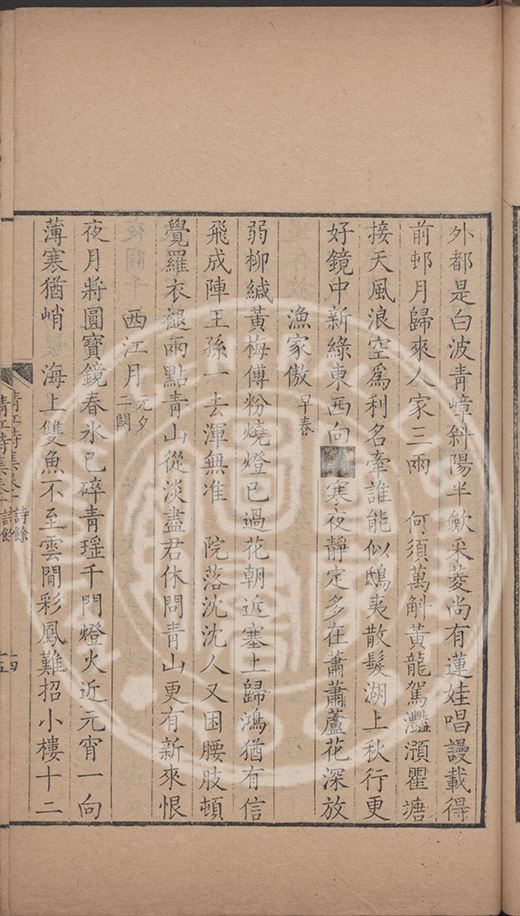 外都是白波青嶂斜陽半斂采菱尚有蓮娃唱謾載得
前邨月歸來人家三兩　何須萬斛黃龍駕灩澦瞿塘
接天風浪空爲利名牽誰能似鴟夷散髮湖上秋行更
好鏡中新綠東西向寒夜靜定多在蕭蕭蘆花深放
漁家傲 早春
弱柳緘黃梅傅粉燒燈已過花朝近塞上歸鴻猶有信
飛成陣王孫一去渾無准　院落沈沈人又困腰肢頓
覺羅衣褪兩點青山從淡盡君休問青山更有新來恨
西江月 元夕二闋
夜月將圓寶鏡春氷已碎青瑶千門燈火近元宵一向
薄寒猶峭　海上雙魚不至雲閒彩鳳難招小樓十二
青芝詩集卷十 詩餘 十四